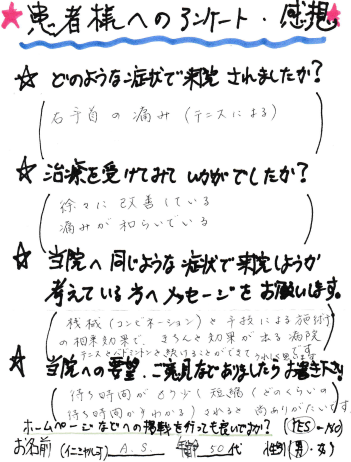 患者様へのアンケート・感想
☆ どのような症状で来院されましたか?
右手首の痛み(テニスによる)
☆ 治療を受けてみていかがでしたか?
徐々に改善している
痛みが和らいでいる
☆ 当院へ同じような症状で来院しようか
考えている方へメッセージをお願いします。
機械(コンビネーション)と手技による施術
の相乗効果で、きちんと効果が出る病院です
テニスとバドミントンを続けることができてうれしく思います
☆ 当院への要望、ご意見などありましたらお書き下さい
待ち時間がもう少し短縮(どのくらいの
待ち時間かすわかる)されると尚ありがたいです。
ホームページなどへの掲載を行っても良いですか? (YES・NO)
お名前(イニシャル可) A.S. 年齢 50代 性別(男・女)